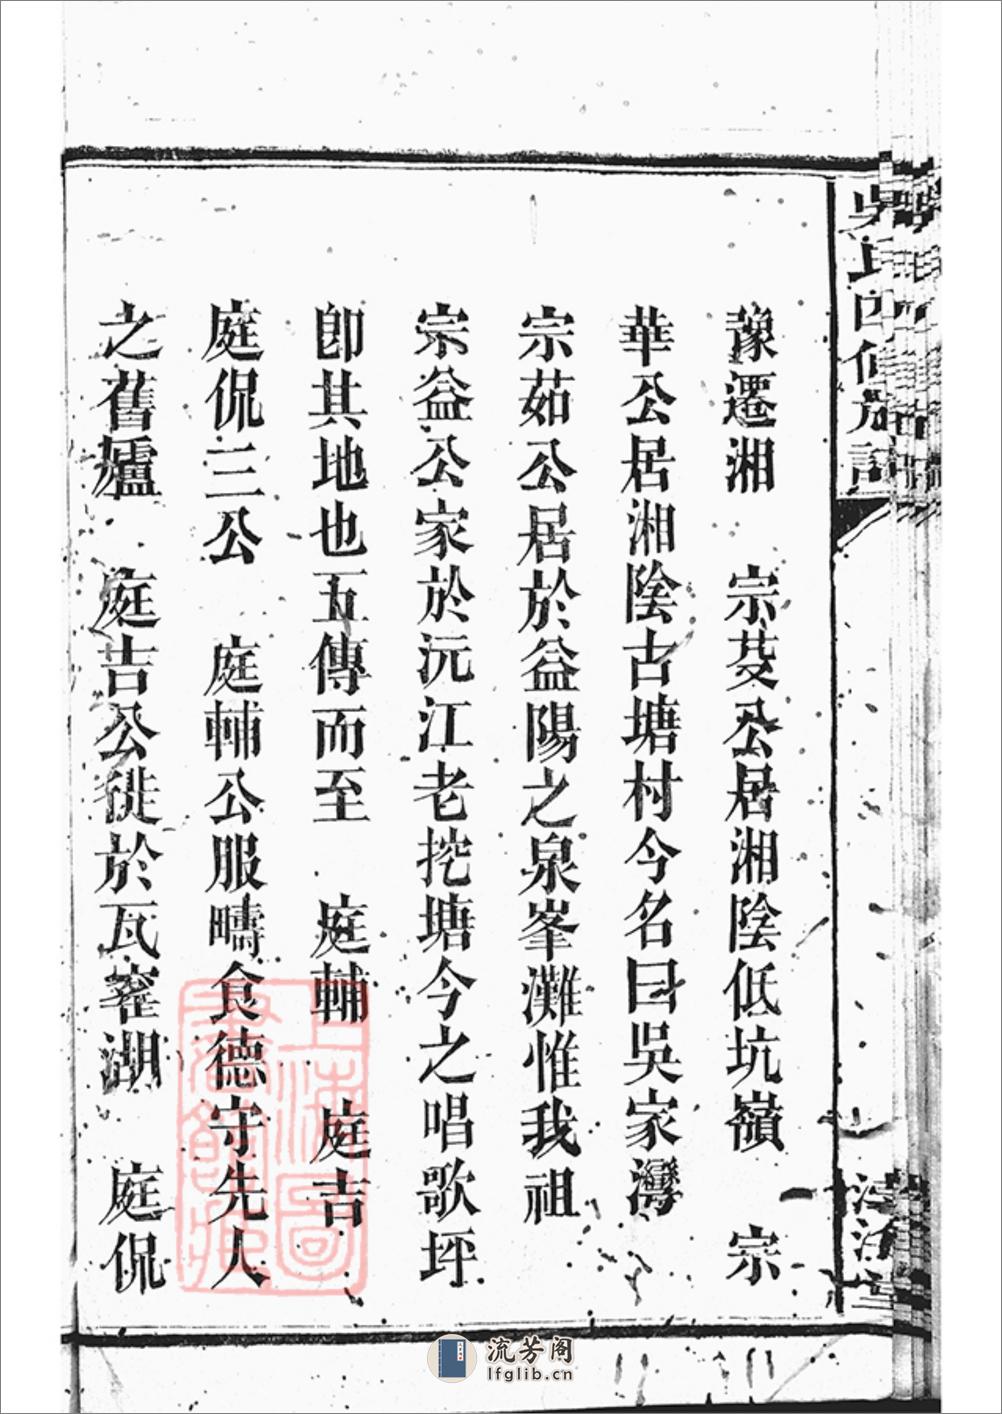 豫遷湘　宗芟公居湘陰低坑嶺　宗
華公居湘陰古塘村今名曰吳家灣
宗茹公居於益陽之泉峯灘惟我祖
宗益公家於沅江老挖塘今之唱歌坪
卽其地也五傳而至　庭輔　庭吉
庭侃三公　庭輔公服疇食德守先人
之舊壚　庭吉公徙於瓦窰湖　庭侃
上海圖
書館藏
流芳阁
lfglib.cn